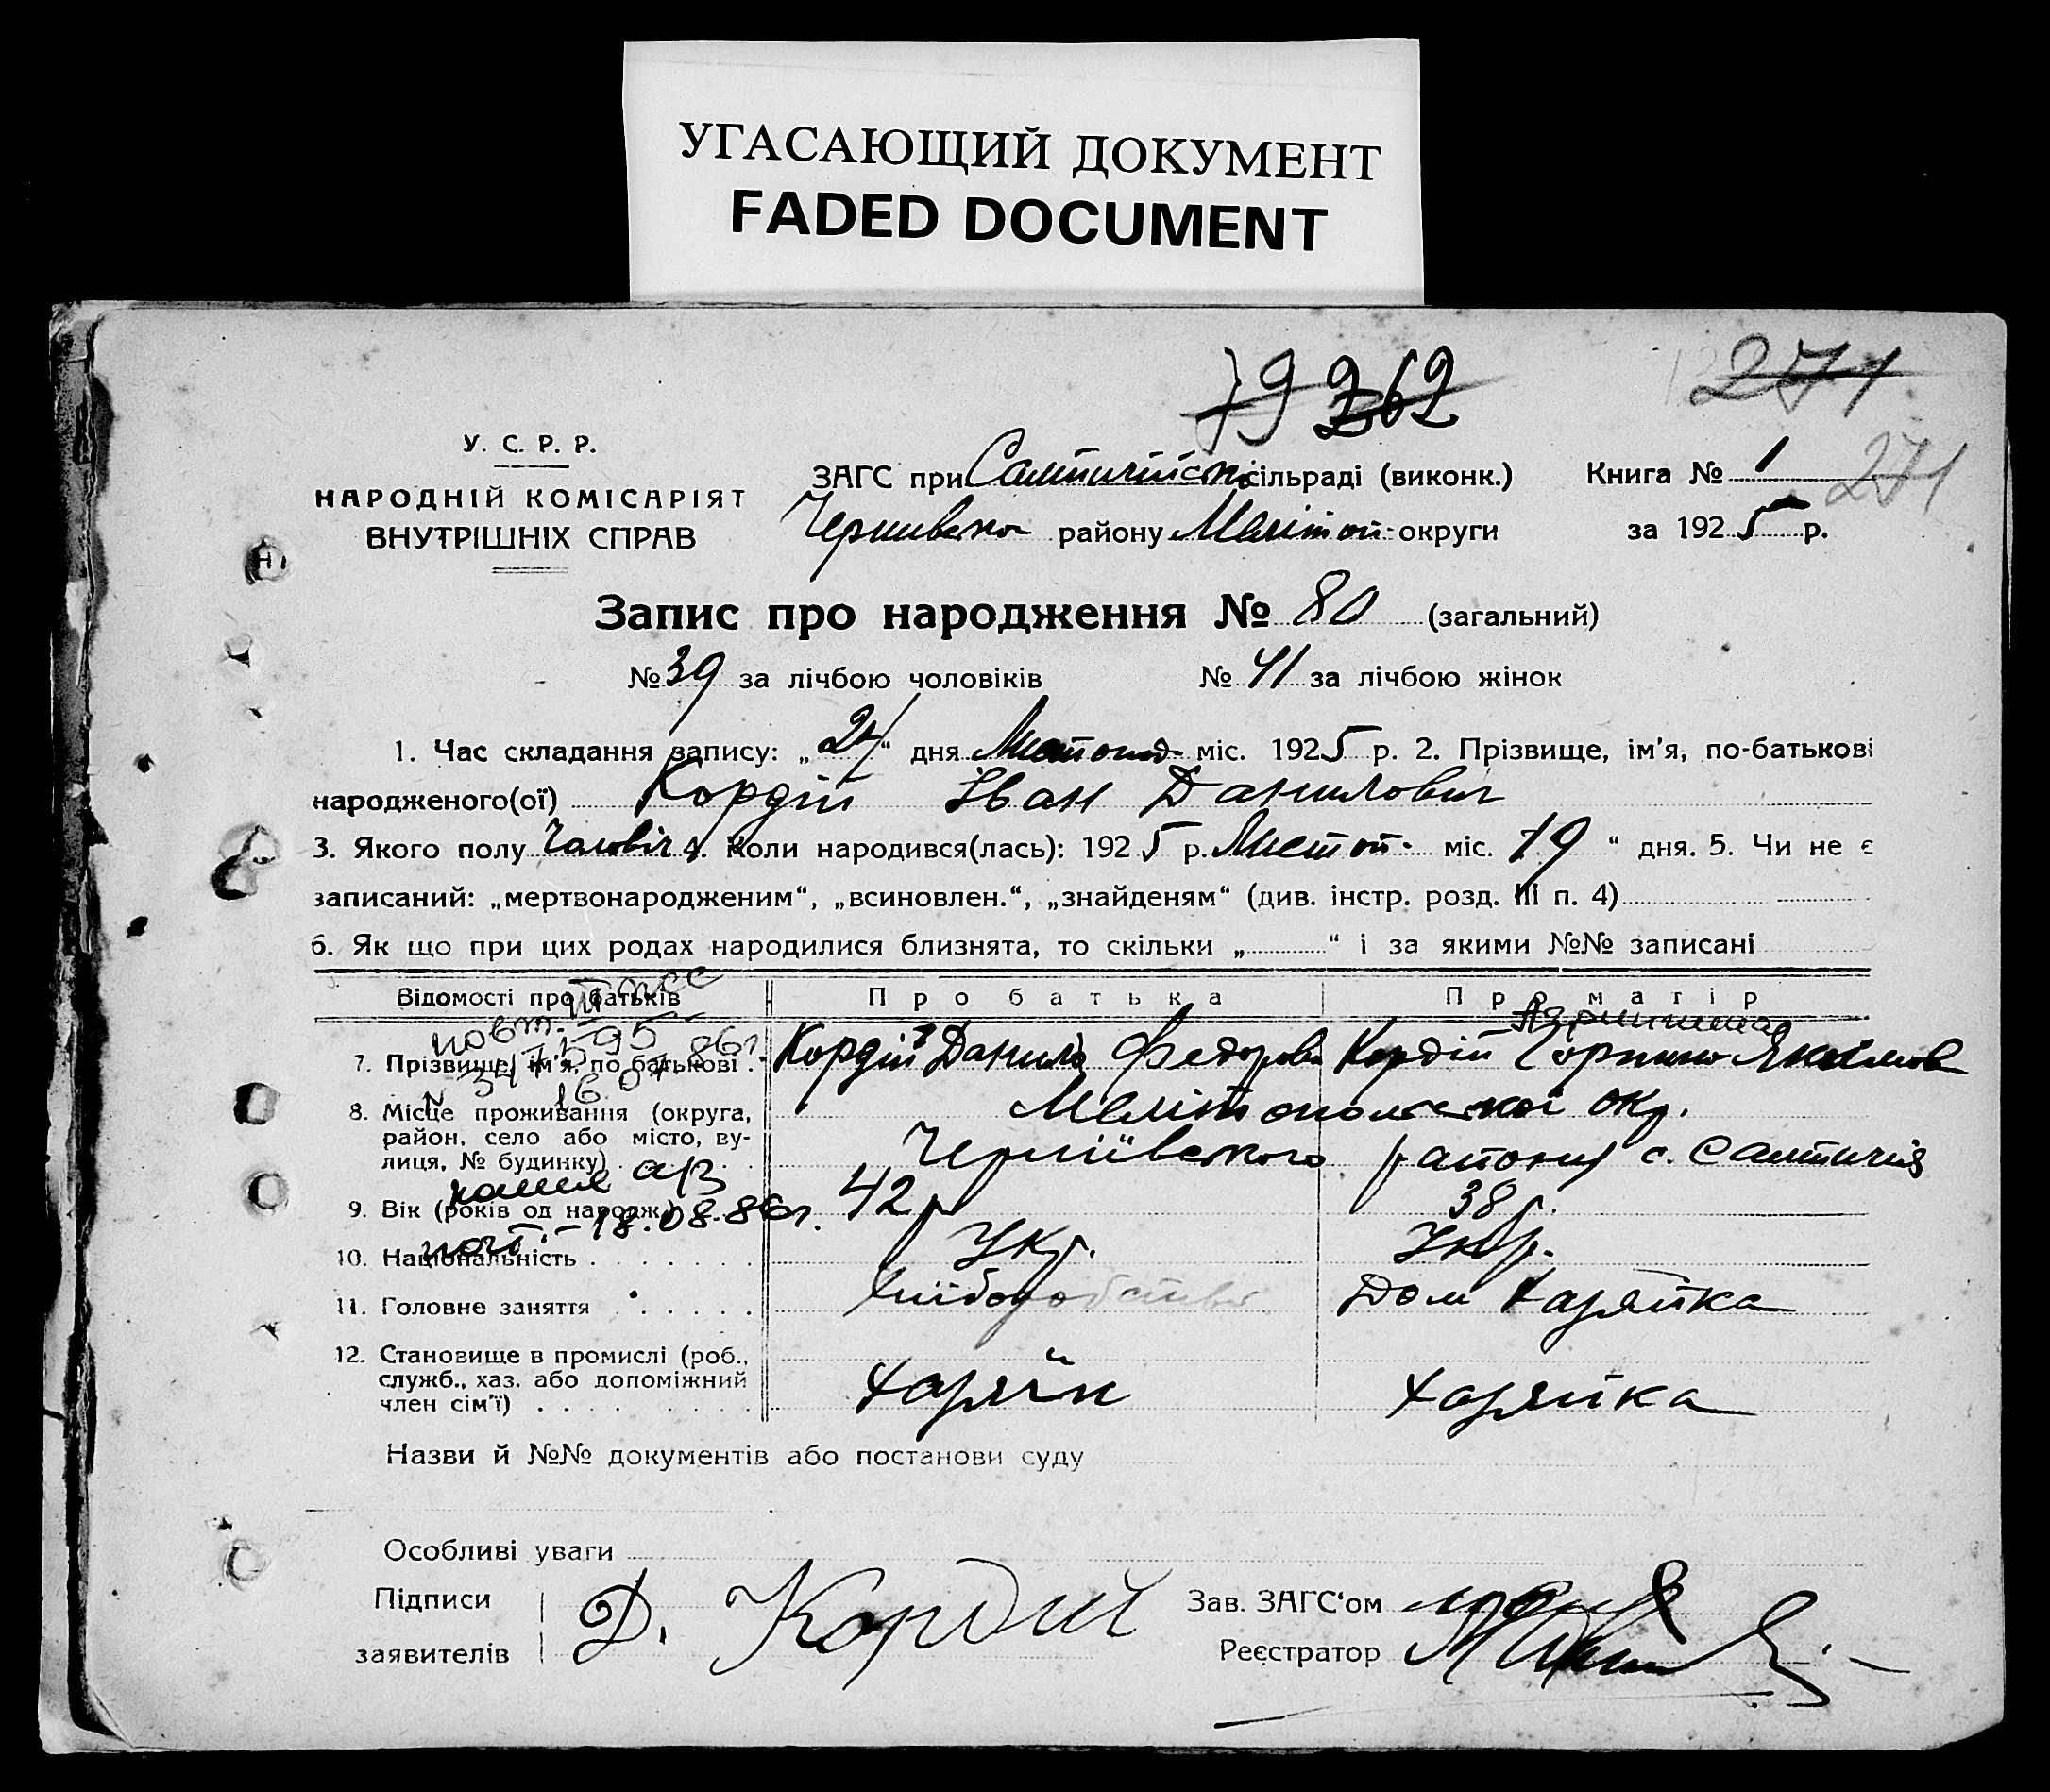 УГАСАЮЩИЙ ДОКУМЕНТ
FADED DOCUMENT
79 262
271
271
У. С. Р. Р.
НАРОДНІЙ КОМІСАРІЯТ
ВНУТРІШНІХ СПРАВ
ЗАГС при сільраді (виконк.)
району Мелітоп округи
Книга № 1
за 1925 р.
Запис про народження № 80 (загальний)
№ 39 за лічбою чоловіків № 41 за лічбою жінок
1. Час складання запису: „24“ дня Листопад міс. 1925 р. 2. Прізвище, ім'я, по-батькові
народженого(ої) Кордій Іван Данилович
3. Якого полу Чоловіч 4. Коли народився(лась): 1925 р. Листоп. міс. 19 “ дня. 5. Чи не є
записаний: „мертвонародженим“, „всиновлен.“, „знайденям“ (див. інстр. розд. III п. 4)
6. Як що при цих родах народилися близнята, то скільки „ “ і за якими №№ записані
Відомості про батьків Про батька Про матір
7. Прізвище, ім'я, по батькові . Кордій Данило Федоров Кордій Горпина Якимов
8. Місце проживання (округа, Мелітопольської окр.
район, село або місто, ву-
лиця, № будинку) . району с.
9. Вік (років од народж.) 42 р 38 р.
18.08.86г.
10. Національність . . . . . . Укр. Укр.
11. Головне заняття . . . . . Хліборобство Дом Хазяйка
12. Становище в промислі (роб.,
служб., хаз. або допоміжний
член сім'ї) . . . . . . Хазяїн Хазяйка
Назви й №№ документів або постанови суду
Особливі уваги
Підписи
заявителів Д. Кордий
Зав. ЗАГС'ом
Реєстратор